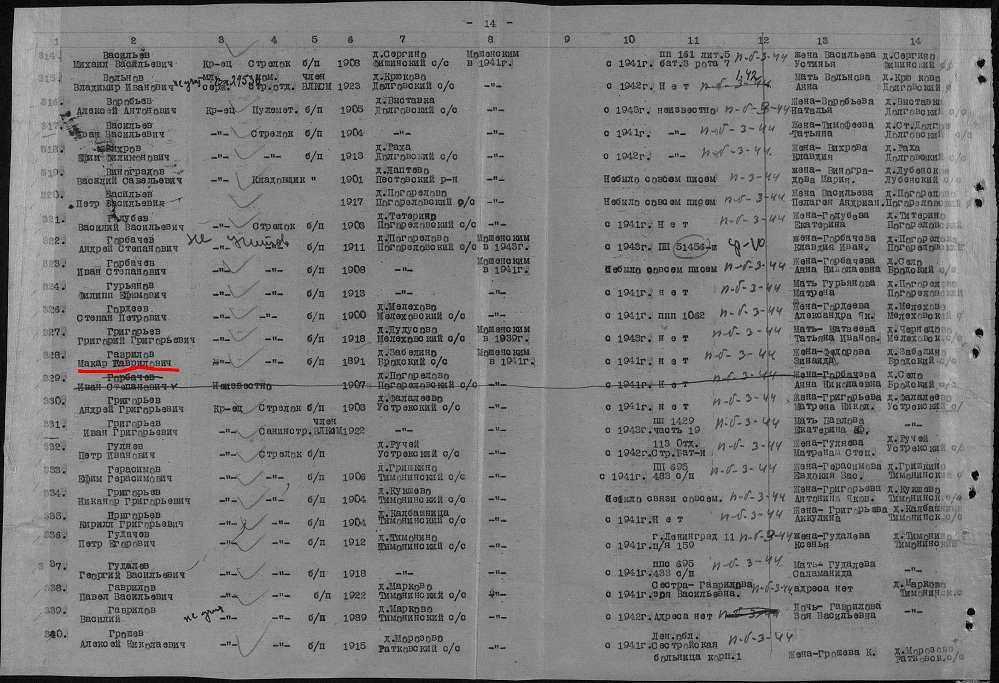 - 14 -
1 2 3 4 5 6 7 8 9 10 11 12 13 14
314. Васильев д.Сергино Мошенским пп 161 лит.5 п-б-3-44 Жена Васильева д.Сергино
Михаил Васильевич Кр-ец Стрелок б/п 1908 Фишинский с/с в 1941г. с 1941г. бат.3 рота 7 Устинья Фишинский
315. Вольнов мл. ком. член д.Крюково Мать Вольнова д.Крюково
Владимир Иванович серж. стр.отд. ВЛКСМ 1923 Долговский с/с -"- с 1942г. Н е т Анна Долговский
316. Воробьев д.Выставка Жена-Воробьева д.Выставка
Алексей Антонович Кр-ец Пулемет. б/п 1905 Долговский с/с -"- с 1943г. неизвестно п-б-3-44 Наталья Долговский
317. Васильев Жена-Тимофеева д.Ст.Долгов
Иван Васильевич -"- Стрелок б/п 1904 -"- -"- с 1941г. -"- п-б-3-44 Татьяна Долговский
318. Вихров д.Раха Жена- Вихрова д.Раха
Ефим Филимонович -"- -"- б/п 1913 Долговский с/с -"- с 1942г. -"- п-б-3-44 Клавдия Долговский с/с
319. Виноградов д.Лаптево жена- Виногра- д.Лубенское
Василий Савельевич -"- Кладовщик " 1901 Пестовский р-н Небыло совсем писем п-3-44 дова Мария. Лубенский с/с
220. Васильев д.Погорелово Жена Васильева д.Погорелово
Петр Васильевич 1917 Погореловский с/с Небыло совсем писем п-б-3-44 Пелагея Андриан. Погореловский
321. Голубев д.Тетерино Жена-Голубева д.Титерино
Василий Васильевич -"- Стрелок б/п 1908 Погореловский с/с -"- с 1941г. Нет п-б-3-44 Екатерина Погореловский
322. Горбачев не учитыв д.Погорелово Мошенским жена-Горбачева д.Погорелово
Андрей Степанович -"- -"- б/п 1911 Погореловский с/с в 1943г. с 1943г. ПП 51456-ш Клавдия Иван. Погореловск
323. Горбачев Мошенским Жена-Горбачева д.Село
Иван Степанович -"- -"- б/п 1908 -"- в 1941г. Небыло совсем писем п-б-3-44 Анна Николаевна Бродский с/с
324. Гурьянов Мать Гурьянова д.Погорелово
Филипп Ефимович -"- -"- б/п 1913 -"- -"- с 1941г. н е т п-б-3-44 Матрена Погореловский
326. Гордеев д.Мелехово Жена-Гордеева д.Мелехово
Степан Петрович -"- -"- б/п 1900 Мелеховский с/с -"- с 1941г. ппп 1062 п-б-3-44 Александра Як. Мелеховский
327. Григорьев д.Дудусово Мошенским Мать- Матвеева д.Чернецово
Григорий Григорьевич -"- -"- б/п 1918 Мелеховский с/с в 1939г. с 1943г. н е т п-б-3-44 Татьяна Иванов. Мелеховский
328. Гаврилов д.Забелино Мошенским Жена-Федорова д.Забелино
Макар Гаврилович -"- -"- б/п 1891 Бродский с/с в 1941г. с 1941г. н е т п-б-3-44 Зинаида Бродский с/с
329. Горбачев д.Погорелово Жена-Горбачева д.Село
Иван Степанович Неизвестно 1907 Погореловский с/с -"- с 1941г. Н е т Анна Николаевна Бродский с/с
330. Григорьев д.Залалеево Жена-Григорьева д.Залалеево
Андрей Григорьевич Кр-ец Стрелок б/п 1903 Устрекский с/с -"- с 1941г. н е т п-б-3-44 Матрена Никол. Устрекский с/с
331. Григорьев член ПП 1429 Мать Павлова
Иван Григорьевич -"- Санинстр. ВЛКСМ 1922 -"- -"- с 1943г. часть 19 п-б-3-44 Екатерина -"-
332. Гуляев д.Ручей 113 Отд. Жена-Гуляева д.Ручей
Петр Иванович -"- Стрелок б/п Устрекский с/с -"- с 1942г. Стр.Бат-н п-б-3-44 Матрена Степ. Устрекский с/с
333. Герасимов д.Гришкино ПП 695 Жена-Герасимова д.Гришкино
Ефим Герасимович -"- -"- б/п 1906 Тимонинский с/с -"- с 1941г. 483 с/п п-б-3-44 Евдокия Вас. Тимонинский с/с
334. Григорьев д.Кукшево Жена-Григорьева д.Кукшево
Никанор Григорьевич -"- -"- б/п 1904 Тимонинский с/с -"- Небыло связи совсем. п-б-3-44 Антонина Яков. Тимонинск.с/с
335. Григорьев д.Калбашница Жена- Григорьева д.Калбашница
Кирилл Григорьевич -"- -"- б/п 1904 Тимонинский с/с -"- с 1941г. Н е т п-б-3-44 Аккулина Тимонинск.с/с
336. Гудачев д.Тимонино г.Ленинград 11 п-б-3-44 Жена-Гудалева д.Тимонино
Петр Егорович -"- -"- б/п 1912 Тимонинский с/с -"- с 1941г. п/я 159 Ксенья Тимонинский
337. Гудалев ппс 695 Мать- Гудалева
Георгий Васильевич -"- -"- б/п 1918 -"- -"- с 1941г. 433 с/п п-б-3-44 Саламанида -"-
338. Гаврилов д.Марково Сестра- Гаврилова д.Марково
Павел Васильевич -"- -"- б/п 1922 Тимонинский с/с -"- с 1941г. Зоя Васильевна. п-б-3-44 адреса нет Тимонинск.с/с
339. Гаврилов д.Марково Дочь- Гаврилова
Василий -"- -"- б/п 1989 Тимонинский с/с -"- с 1942г. Адреса нет Зоя Васильевна -"-
340. Грошев д.Морозово Лен.обл. п-б-3-44
Алексей Николаевич -"- -"- б/п 1915 Ратковский с/с -"- с 1941г. Сестройская д.Морозово
больница корп.1 Жена-Грошева К. Ратковск.с/с